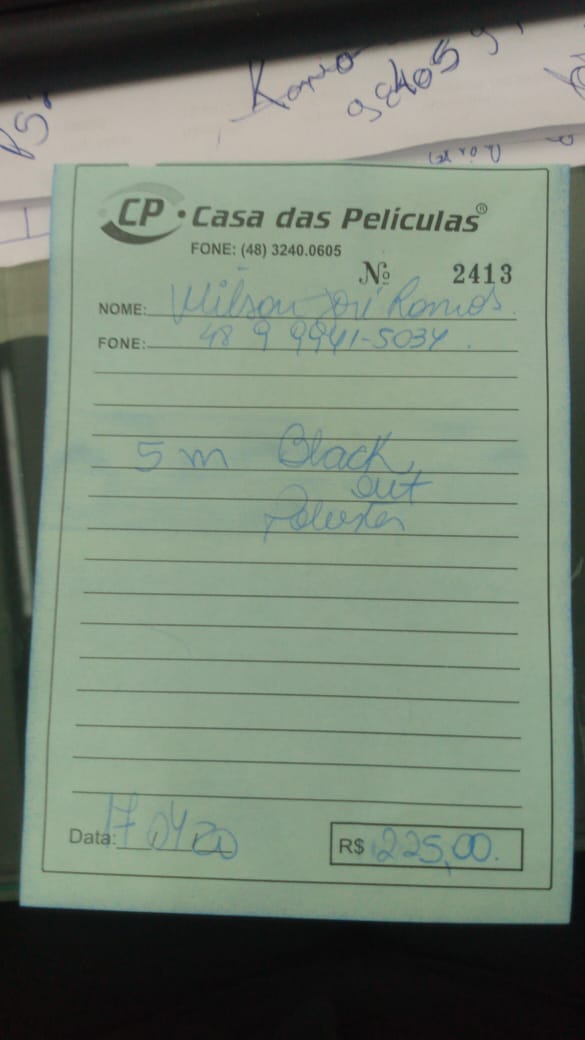 Karo
98405 9
CP • Casa das Películas®
FONE: (48) 3240.0605
Nº 2413
NOME: Wilson José Ramos
FONE: 48 9 9941-5034
5 m Black
out
Poliester
Data: 17 04 20 R$ 225,00.